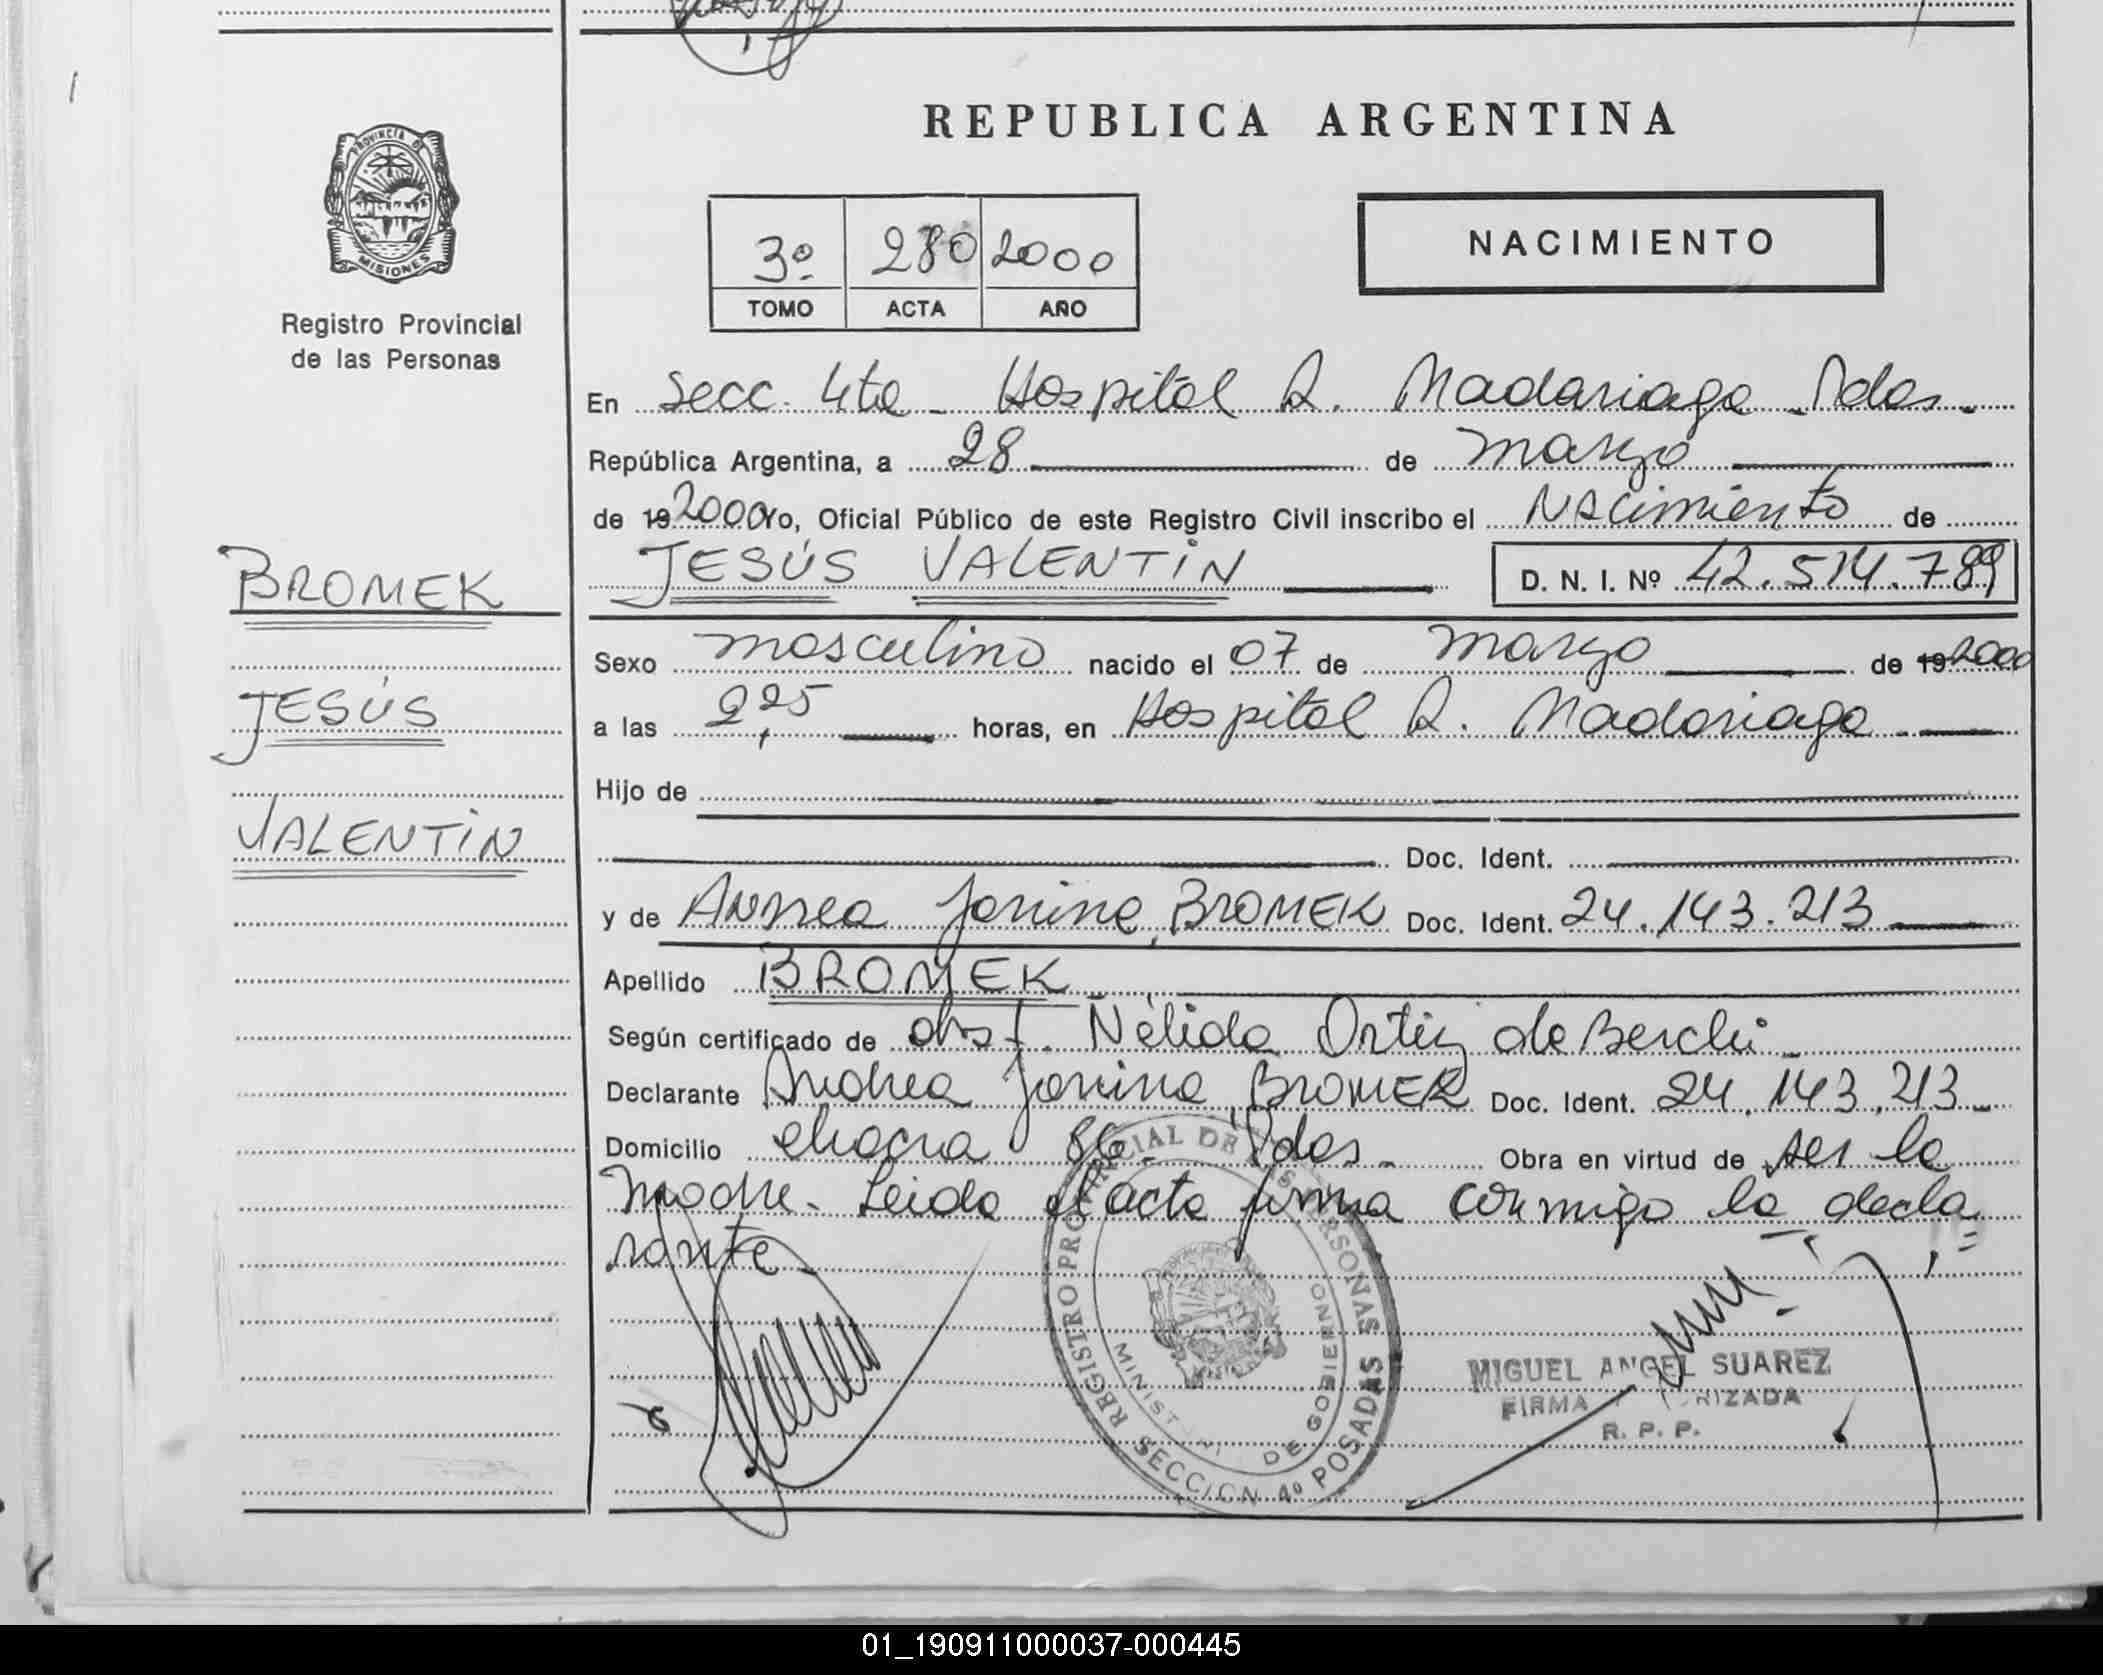 REPUBLICA ARGENTINA
PROVINCIA D
MISIONES
Registro Provincial
de las Personas
3º 280 2000
TOMO ACTA AÑO
NACIMIENTO
En Secc. 4ta - Hospital R. Madariaga - Pdas.
República Argentina, a 28 de marzo
de 19 2000 Yo, Oficial Público de este Registro Civil inscribo el Nacimiento de
JESÚS VALENTIN D. N. I. Nº 42.514.789
BROMEK
JESÚS
VALENTIN
Sexo masculino nacido el 07 de marzo de 19 2000
a las 2,25 horas, en Hospital R. Madariaga
Hijo de
Doc. Ident.
y de Andrea Janina BROMEK Doc. Ident. 24.143.213
Apellido BROMEK
Según certificado de obst. Nélida Ortiz de Berchi
Declarante Andrea Janina BROMEK Doc. Ident. 24.143.213
Domicilio chacra 86 - Pdas. Obra en virtud de ser la
madre. Leida el acta firma conmigo la decla
rante
REGISTRO PROVINCIAL DE LAS PERSONAS
SECCION 4º POSADAS
DE GOBIERNO
MIGUEL ANGEL SUAREZ
FIRMA
R. P. P.
01_190911000037-000445